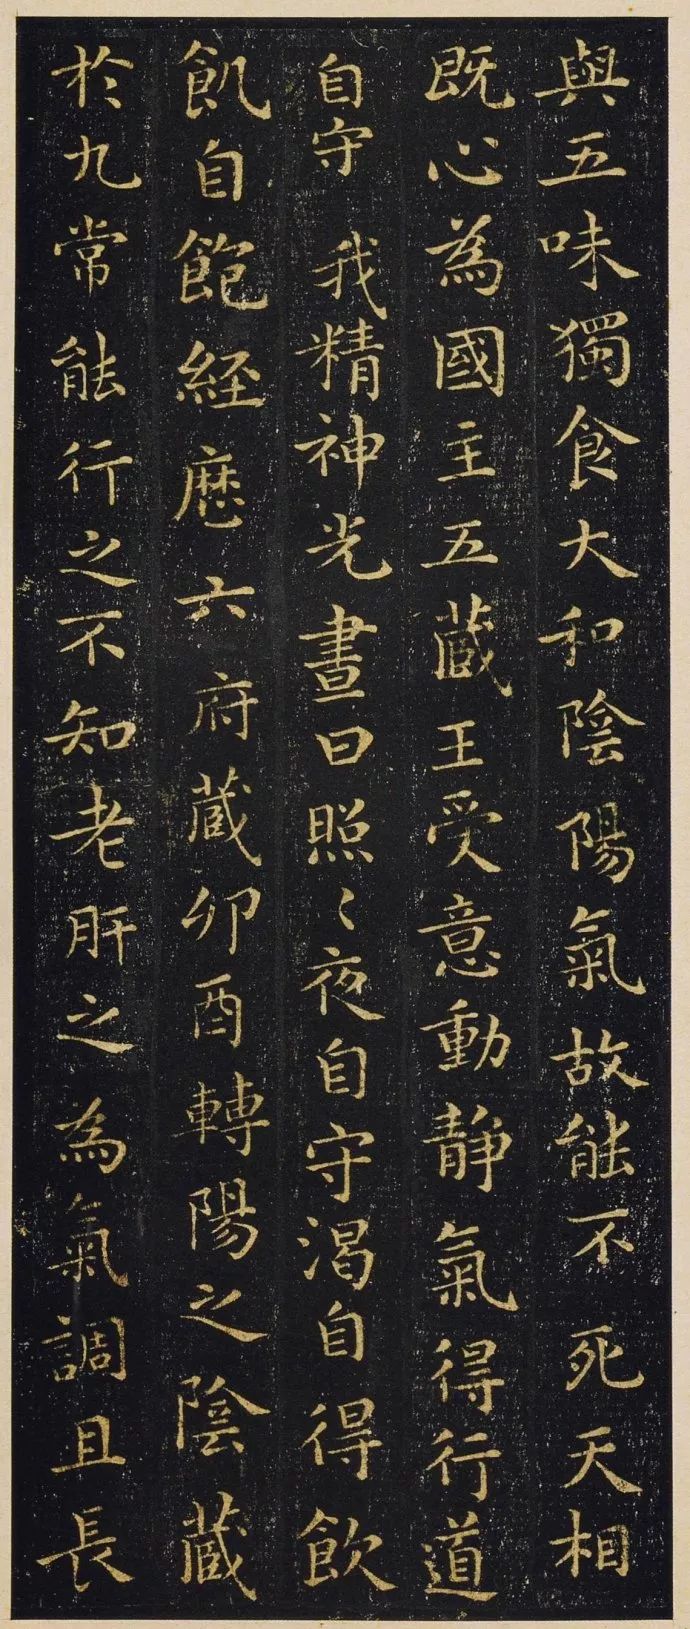 與五味獨食大和陰陽氣故能不死天相
既心為國主五藏王受意動静氣得行道
自守我精神光晝日照〻夜自守渴自得飲
飢自飽經歷六府藏卯酉轉陽之陰藏
於九常能行之不知老肝之為氣調且長